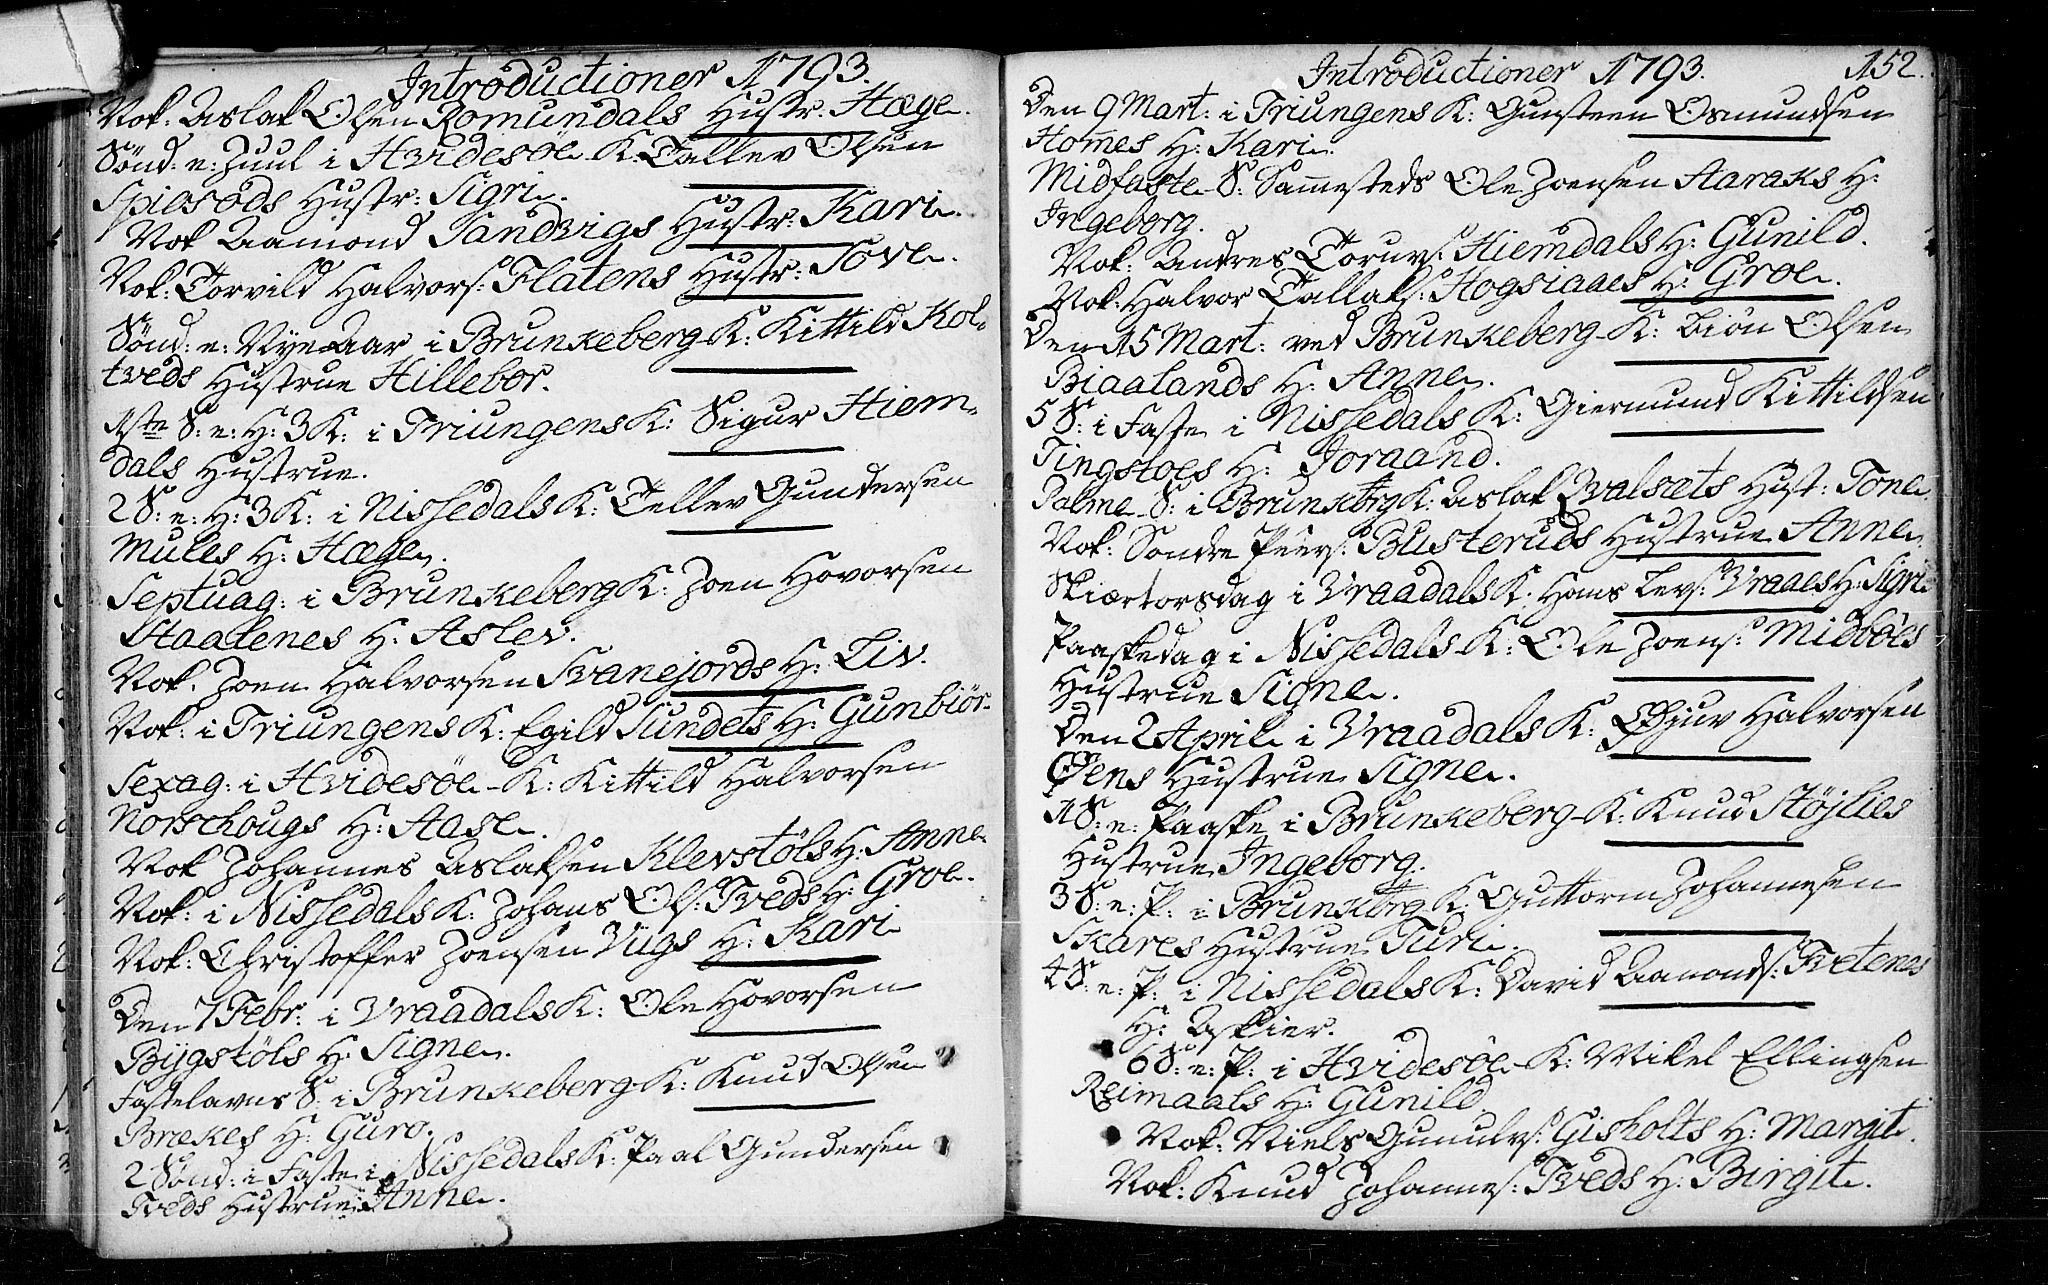 Introductioner 1793.
Nok. Aslak Olsen Romundals Hustr: Hæge.
Sønd: e: Juul i Hvidesöe K. Tallev Olsen
Spilsods Hustr: Sigri.
Nok Aamond Sandvigs Hustr: Kari.
Nok: Torvild Halvors: Flatens Hustr: Tove.
Sönd: e: Nye Aar i Brunkeberg K: Kittild Kol-
tveds Hustrue Hillebor.
1ste S: e: H: 3 K: i Triungens K: Sigur Hiem-
dals Hustrue.
2 S: e: H: 3 K: i Nissedals K: Tellev Gundersen
Mules H: Hæge.
Septuag: i Brunkeberg K: Joen Hovorsen
Staalenes H: Aslev.
Nok. Joen Halvorsen Svanejords H: Liv.
Nok: i Triungens K: Egild Sundets H: Gunbiör.
Sexag: i Hvidesöe K: Kittild Halvorsen
Norschougs H: Aase.
Nok Johannes Aslaksen Klevstöls H: Anne.
Nok: i Nissedals K: Johans Ols: Tveds H: Groe.
Nok: Christoffer Joensen Viigs H: Kari
Den 7 Febr: i Vraadals K: Ole Hovorsen
Bÿgstöls H: Signe.
Fastelavns S: i Brunkeberg K: Knud Olsen
Brekes H: Guro.
2 Sönd: i Faste i Nissedals K: Paal Gundersen
Tveds Hustrue Anne.
Introductioner 1793. 152.
Den 9 Mart: i Triungens K: Gunsteen Osmundsen
Hommes H: Kari.
Midfaste S: Sammesteds Ole Joensen Aaraks H:
Ingeborg.
Nok: Andres Torjers: Hiemdals H: Gunild.
Nok: Halvor Tallaks: Hogsiaaes H: Groe.
Den 15 Mart: ved Brunkeberg K: Biön Olsen
Biaalands H: Anne.
5 S: i Faste i Nissedals K: Giermund Kittildsen
Tingstoes H: Joraand.
Palme S: i Brunkebrg K: Aslak Qvalsets Hust: Tone.
Nok: Sondre Peers: Busteruds Hustrue Anne.
Skiærtorsdag i Vraadals K: Hans Levs: Vraaes H: Sigri
Paaskedag i Nissedals K: Ole Joens: Midbøes
Hustrue Signe.
Den 2 April i Vraadals K: Gjuv Halvorsen
Øens Hustrue Signe.
1 S: e: Paaske i Brunkeberg K: Knud Stöjlies
Hustrue Ingeborg.
3 S: e: P: i Brunkebrg K. Guttorm Johannesen
Skares Hustrue Turi.
4 S: e: P: i Nissedals K: David Aamonds: Tvetenes
H: Askier.
6 S: e: P: i Hvidesöe K: Mikel Ellingsen
Reimaals H: Gunild
Nok: Niels Gunulvs: Gisholts H: Margit.
Nok: Knud Johannes: Tveds H: Birgit.